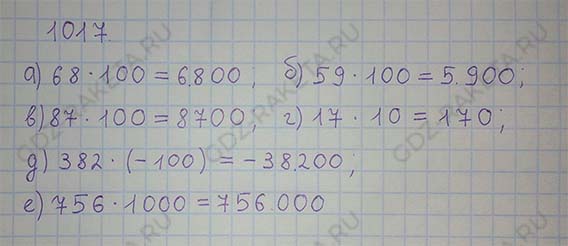 1017.
а) 68 · 100 = 6.800; б) 59 · 100 = 5.900;
в) 87 · 100 = 8700; г) 17 · 10 = 170;
д) 382 · (-100) = -38.200;
е) 756 · 1000 = 756.000
GDZ-RAKETA.RU